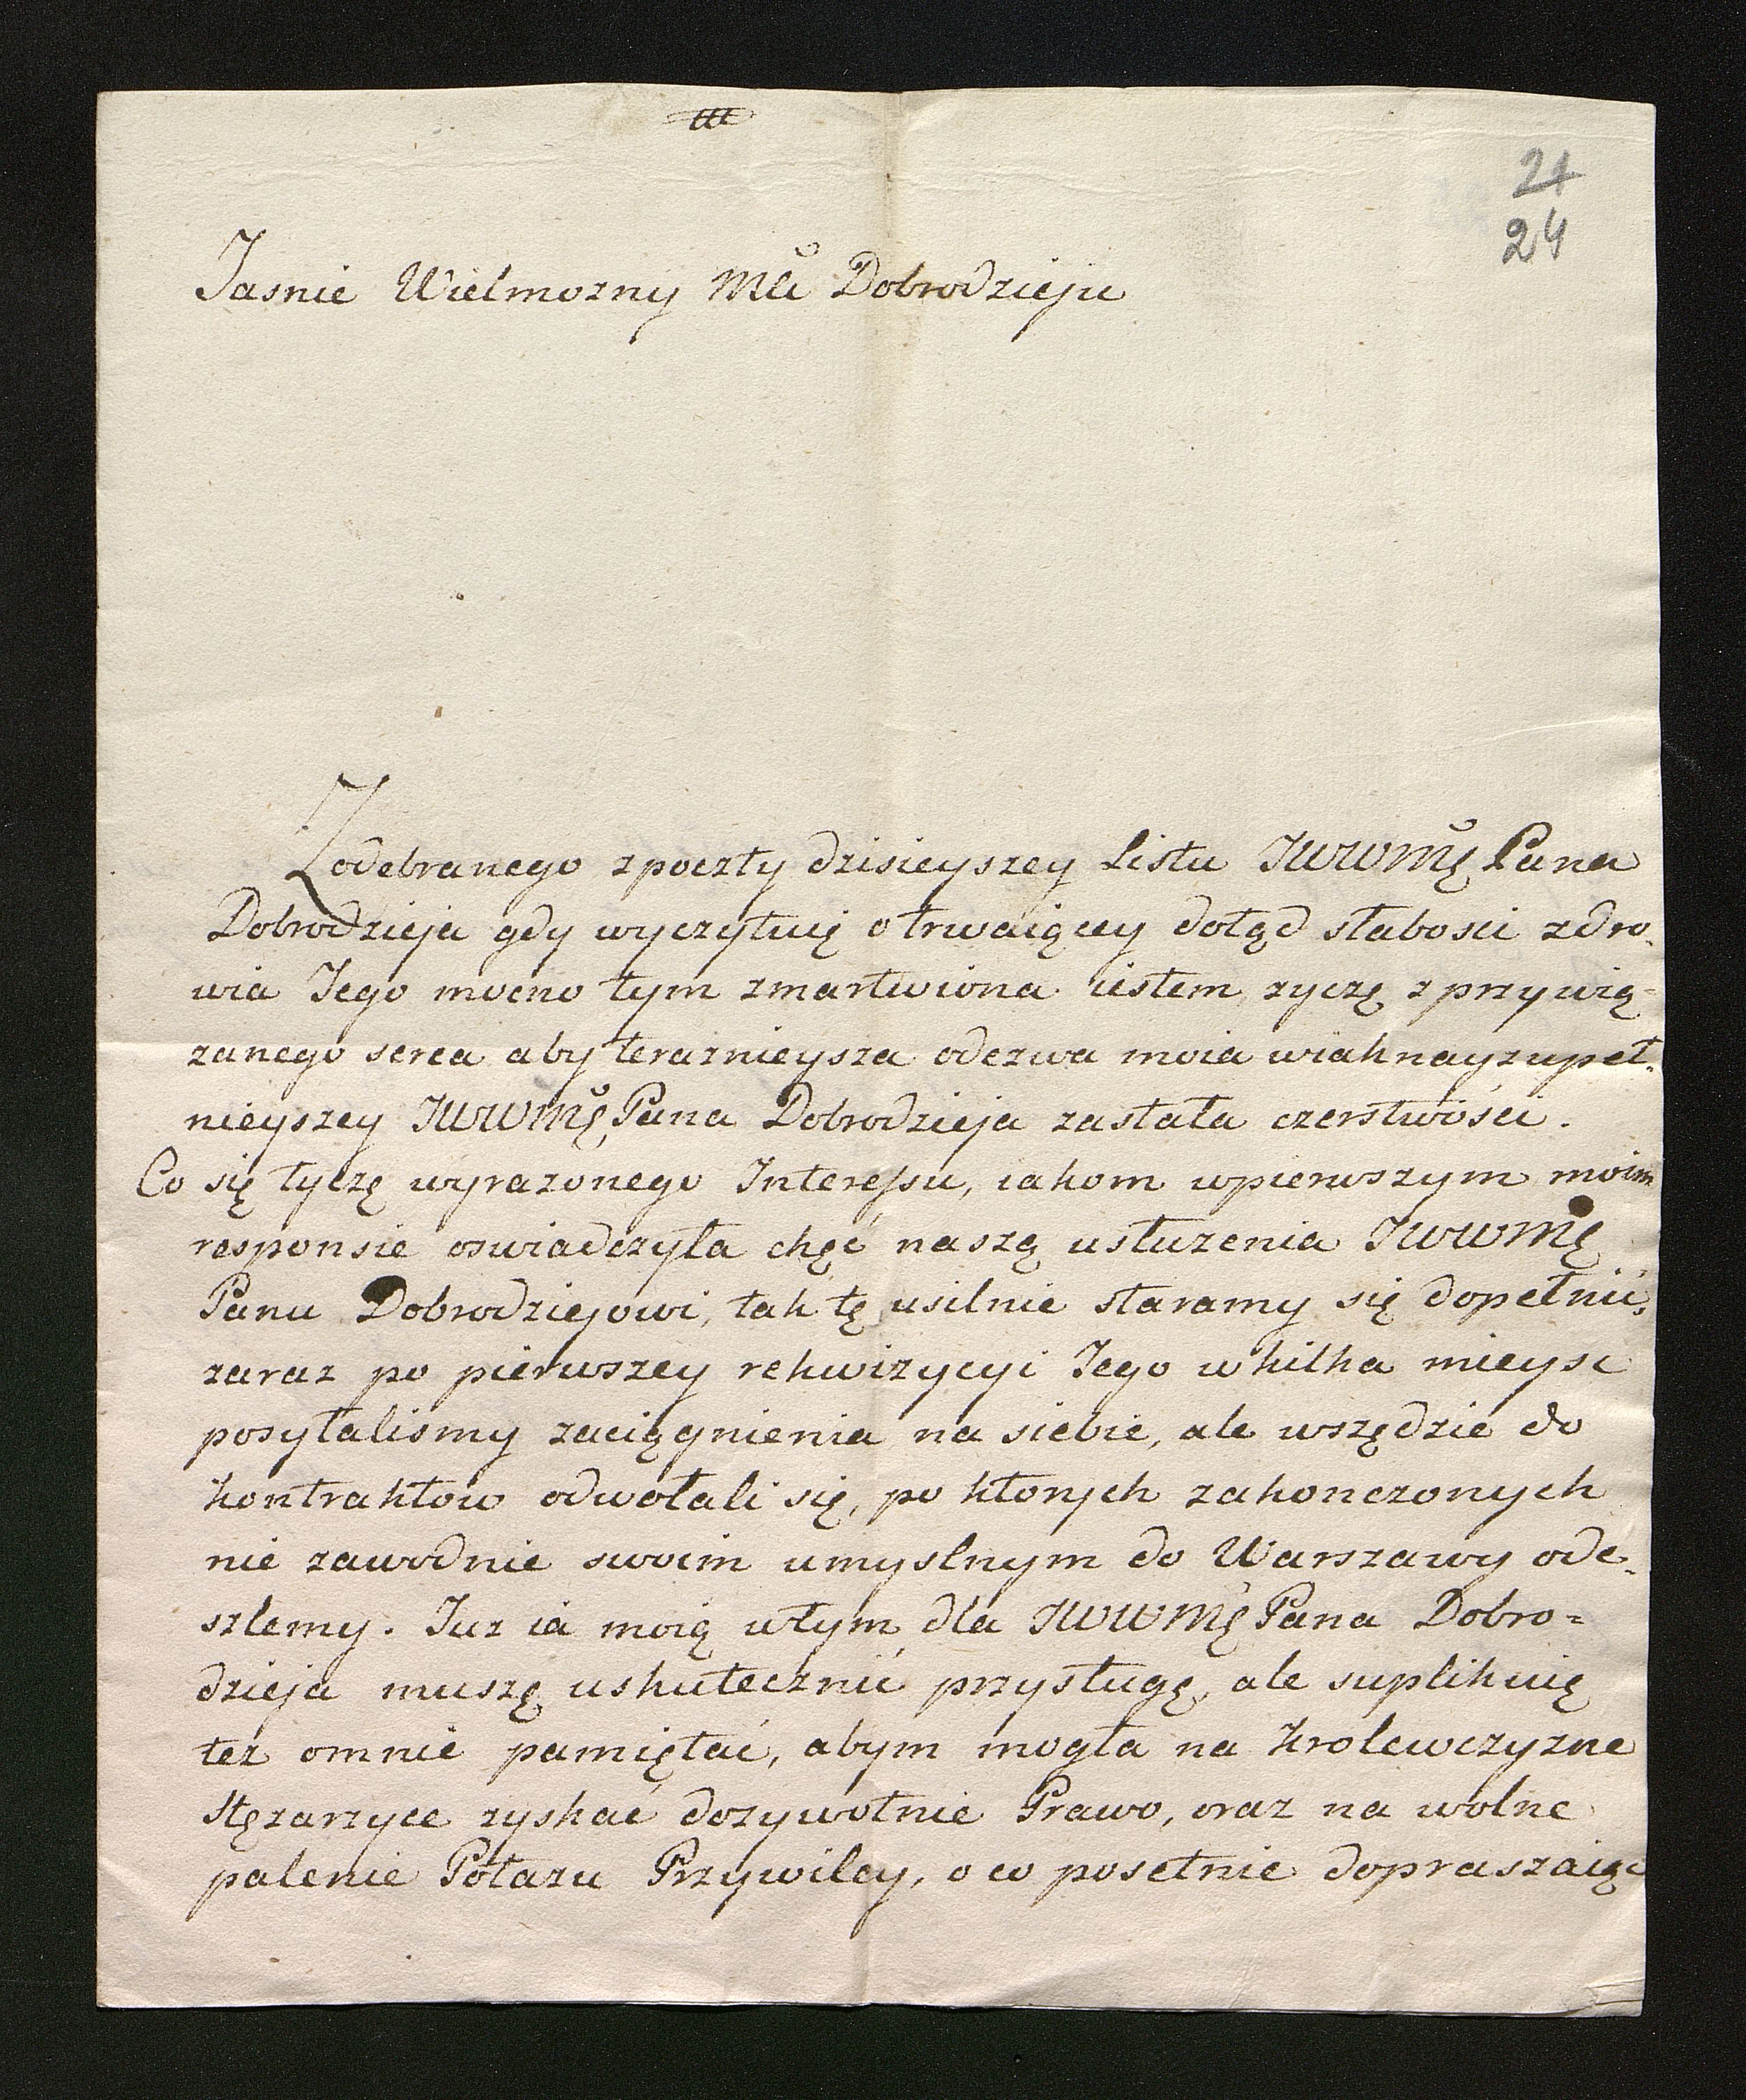 21
24
Jasnie Wielmozny Mći Dobrodzieju
Z odebranego z poczty dzisieyszey Listu JWWMę Pana
Dobrodzieja gdy wyczytuię o trwaiącey dotąd słabosci zdro-
wia Jego mocno tym zmartwiona iestem zyczę z przywią-
zanego serca aby terazniejsza odezwa moia wiak nayzupeł-
nieyszey JWWMę Pana Dobrodzieja zastała czerstwości.
Co się tyczę wyrazonego Interessu, iakom wpierwszym moim
responsie oswiadczyła chęć naszą usłuzenia JWWMę
Panu Dobrodziejowi, tak tę usilnie staramy się dopełnić,
zaraz po pierwszey rekwizycyi Jego w kilka mieysc
posyłalismy zaciągnienia na siebie, ale wszędzie do
Kontraktow odwołali się, po ktorych zakonczonych
nie zawodnie swoim umyslnym do Warszawy ode-
szlemy. Juz ia moią wtym dla JWWMę Pana Dobro=
dzieja muszę uskutecznić przysługę, ale suplikuię
tez omnie pamiętać, abym mogła na Krolewczyzne
Stęzarzyce zyskać dozywotnie Prawo, oraz na wolne
palenie Potazu Przywiley, o co posetnie dopraszaiąc